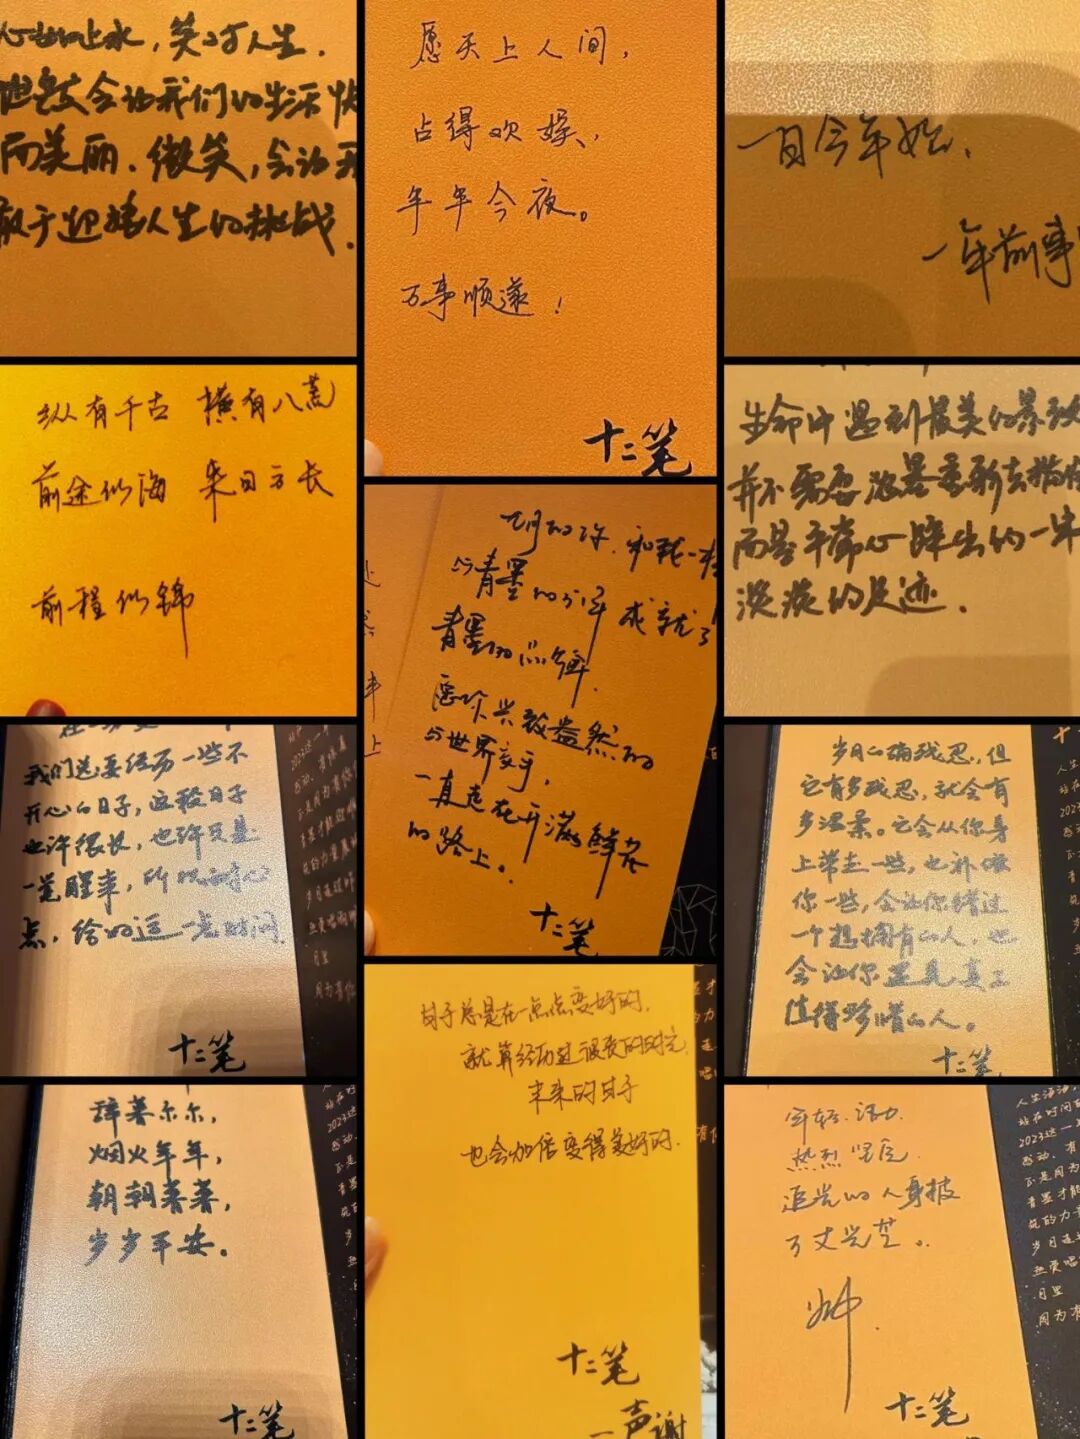 心如止水，笑对人生.
会让我们的生活快
而美丽.微笑，会让
敢于迎接人生的挑战.
愿天上人间，
占得欢娱，
年年今夜。
万事顺遂！
十二笔
一日今年始，
一年前事
纵有千古 横有八荒
前途似海 来日方长
前程似锦
青墨的
愿你兴致盎然的
与世界交手，
一直走在开满鲜花
的路上。
十二笔
生命中遇到最美的景致
并不需要浓墨重彩去描
而是平常心踩出的一串
淡淡的足迹.
我们总要经历一些不
开心的日子，这段日子
也许很长，也许只是
一觉醒来，所以耐心
点，给好运一点时间.
十二笔
岁月的确残忍，但
它有多残忍，就会有
多温柔。它会从你身
上带走一些，也补偿
你一些，会让你错过
一个想拥有的人，也
会让你遇见真正
值得珍惜的人。
十二笔
日子总是在一点点变好的，
就算经历过很丧的时光
未来的日子
也会加倍变得美好的.
十二笔
一声谢
辞暮尔尔，
烟火年年，
朝朝暮暮，
岁岁平安。
十二笔
年轻.活力.
热烈
追光的人身披
万丈光芒。
帅.
十二笔